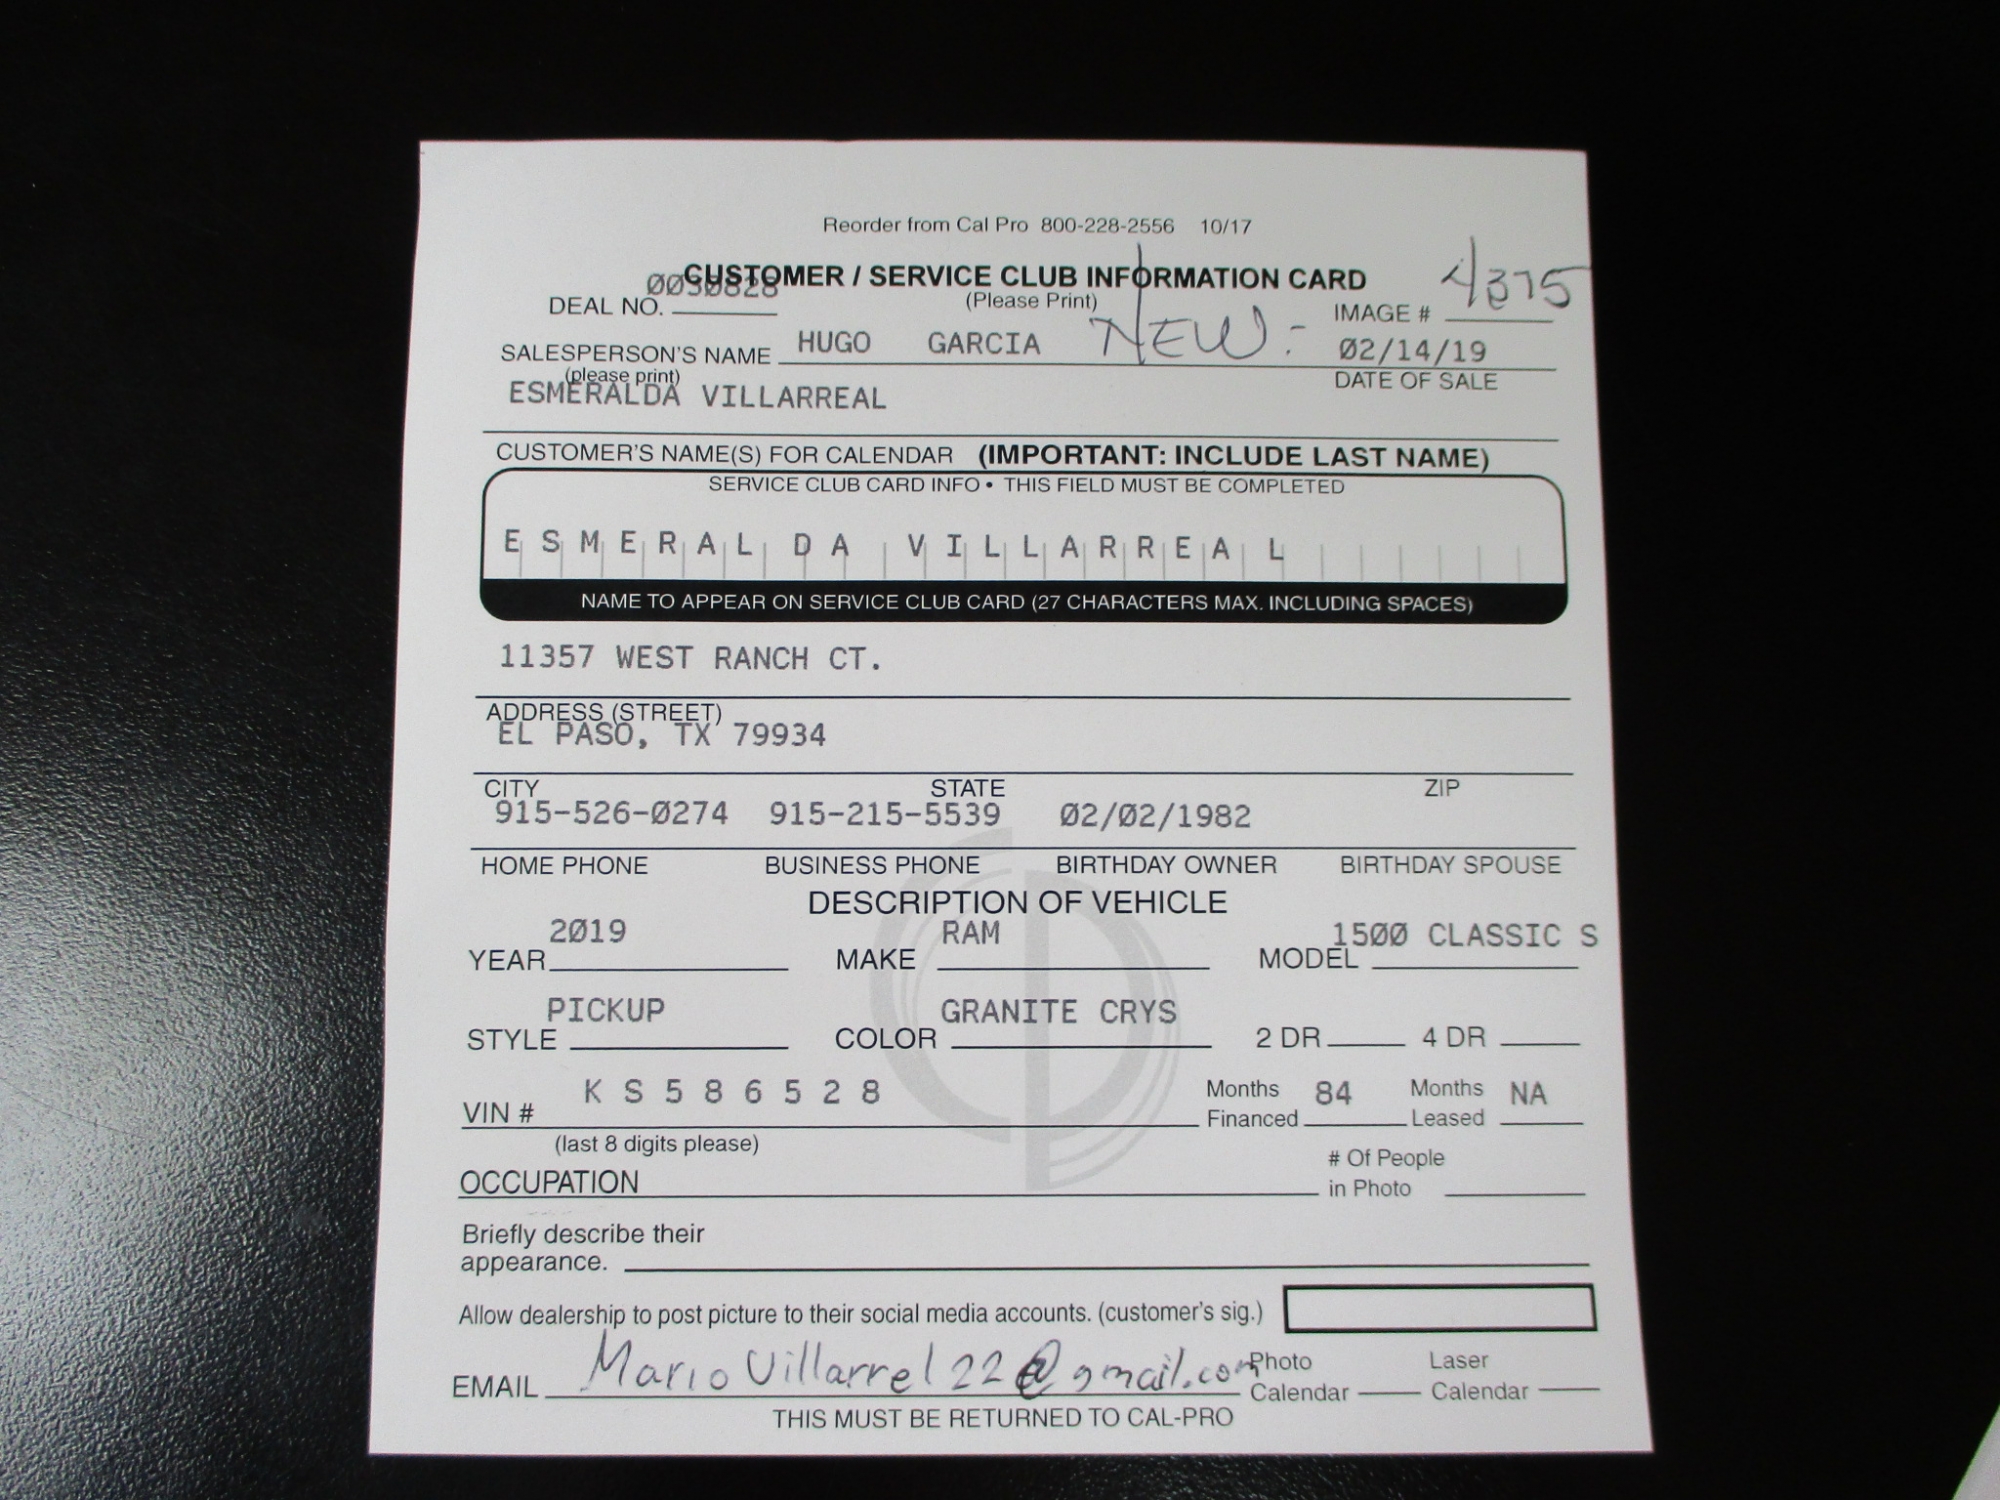 Reorder from Cal Pro 800-228-2556 10/17
CUSTOMER / SERVICE CLUB INFORMATION CARD
(Please Print)
DEAL NO. 0050828
IMAGE # 4375
SALESPERSON'S NAME HUGO GARCIA NEW- 02/14/19
(please print) DATE OF SALE
ESMERALDA VILLARREAL
CUSTOMER'S NAME(S) FOR CALENDAR (IMPORTANT: INCLUDE LAST NAME)
SERVICE CLUB CARD INFO • THIS FIELD MUST BE COMPLETED
ESMERALDA VILLARREAL
NAME TO APPEAR ON SERVICE CLUB CARD (27 CHARACTERS MAX. INCLUDING SPACES)
11357 WEST RANCH CT.
ADDRESS (STREET)
EL PASO, TX 79934
CITY STATE ZIP
915-526-0274 915-215-5539 02/02/1982
HOME PHONE BUSINESS PHONE BIRTHDAY OWNER BIRTHDAY SPOUSE
DESCRIPTION OF VEHICLE
YEAR 2019 MAKE RAM MODEL 1500 CLASSIC S
STYLE PICKUP COLOR GRANITE CRYS 2 DR 4 DR
VIN # KS586528 Months Financed 84 Months Leased NA
(last 8 digits please)
OCCUPATION # Of People in Photo
Briefly describe their
appearance.
Allow dealership to post picture to their social media accounts. (customer's sig.)
EMAIL MarioVillarrel22@gmail.com Photo Calendar Laser Calendar
THIS MUST BE RETURNED TO CAL-PRO